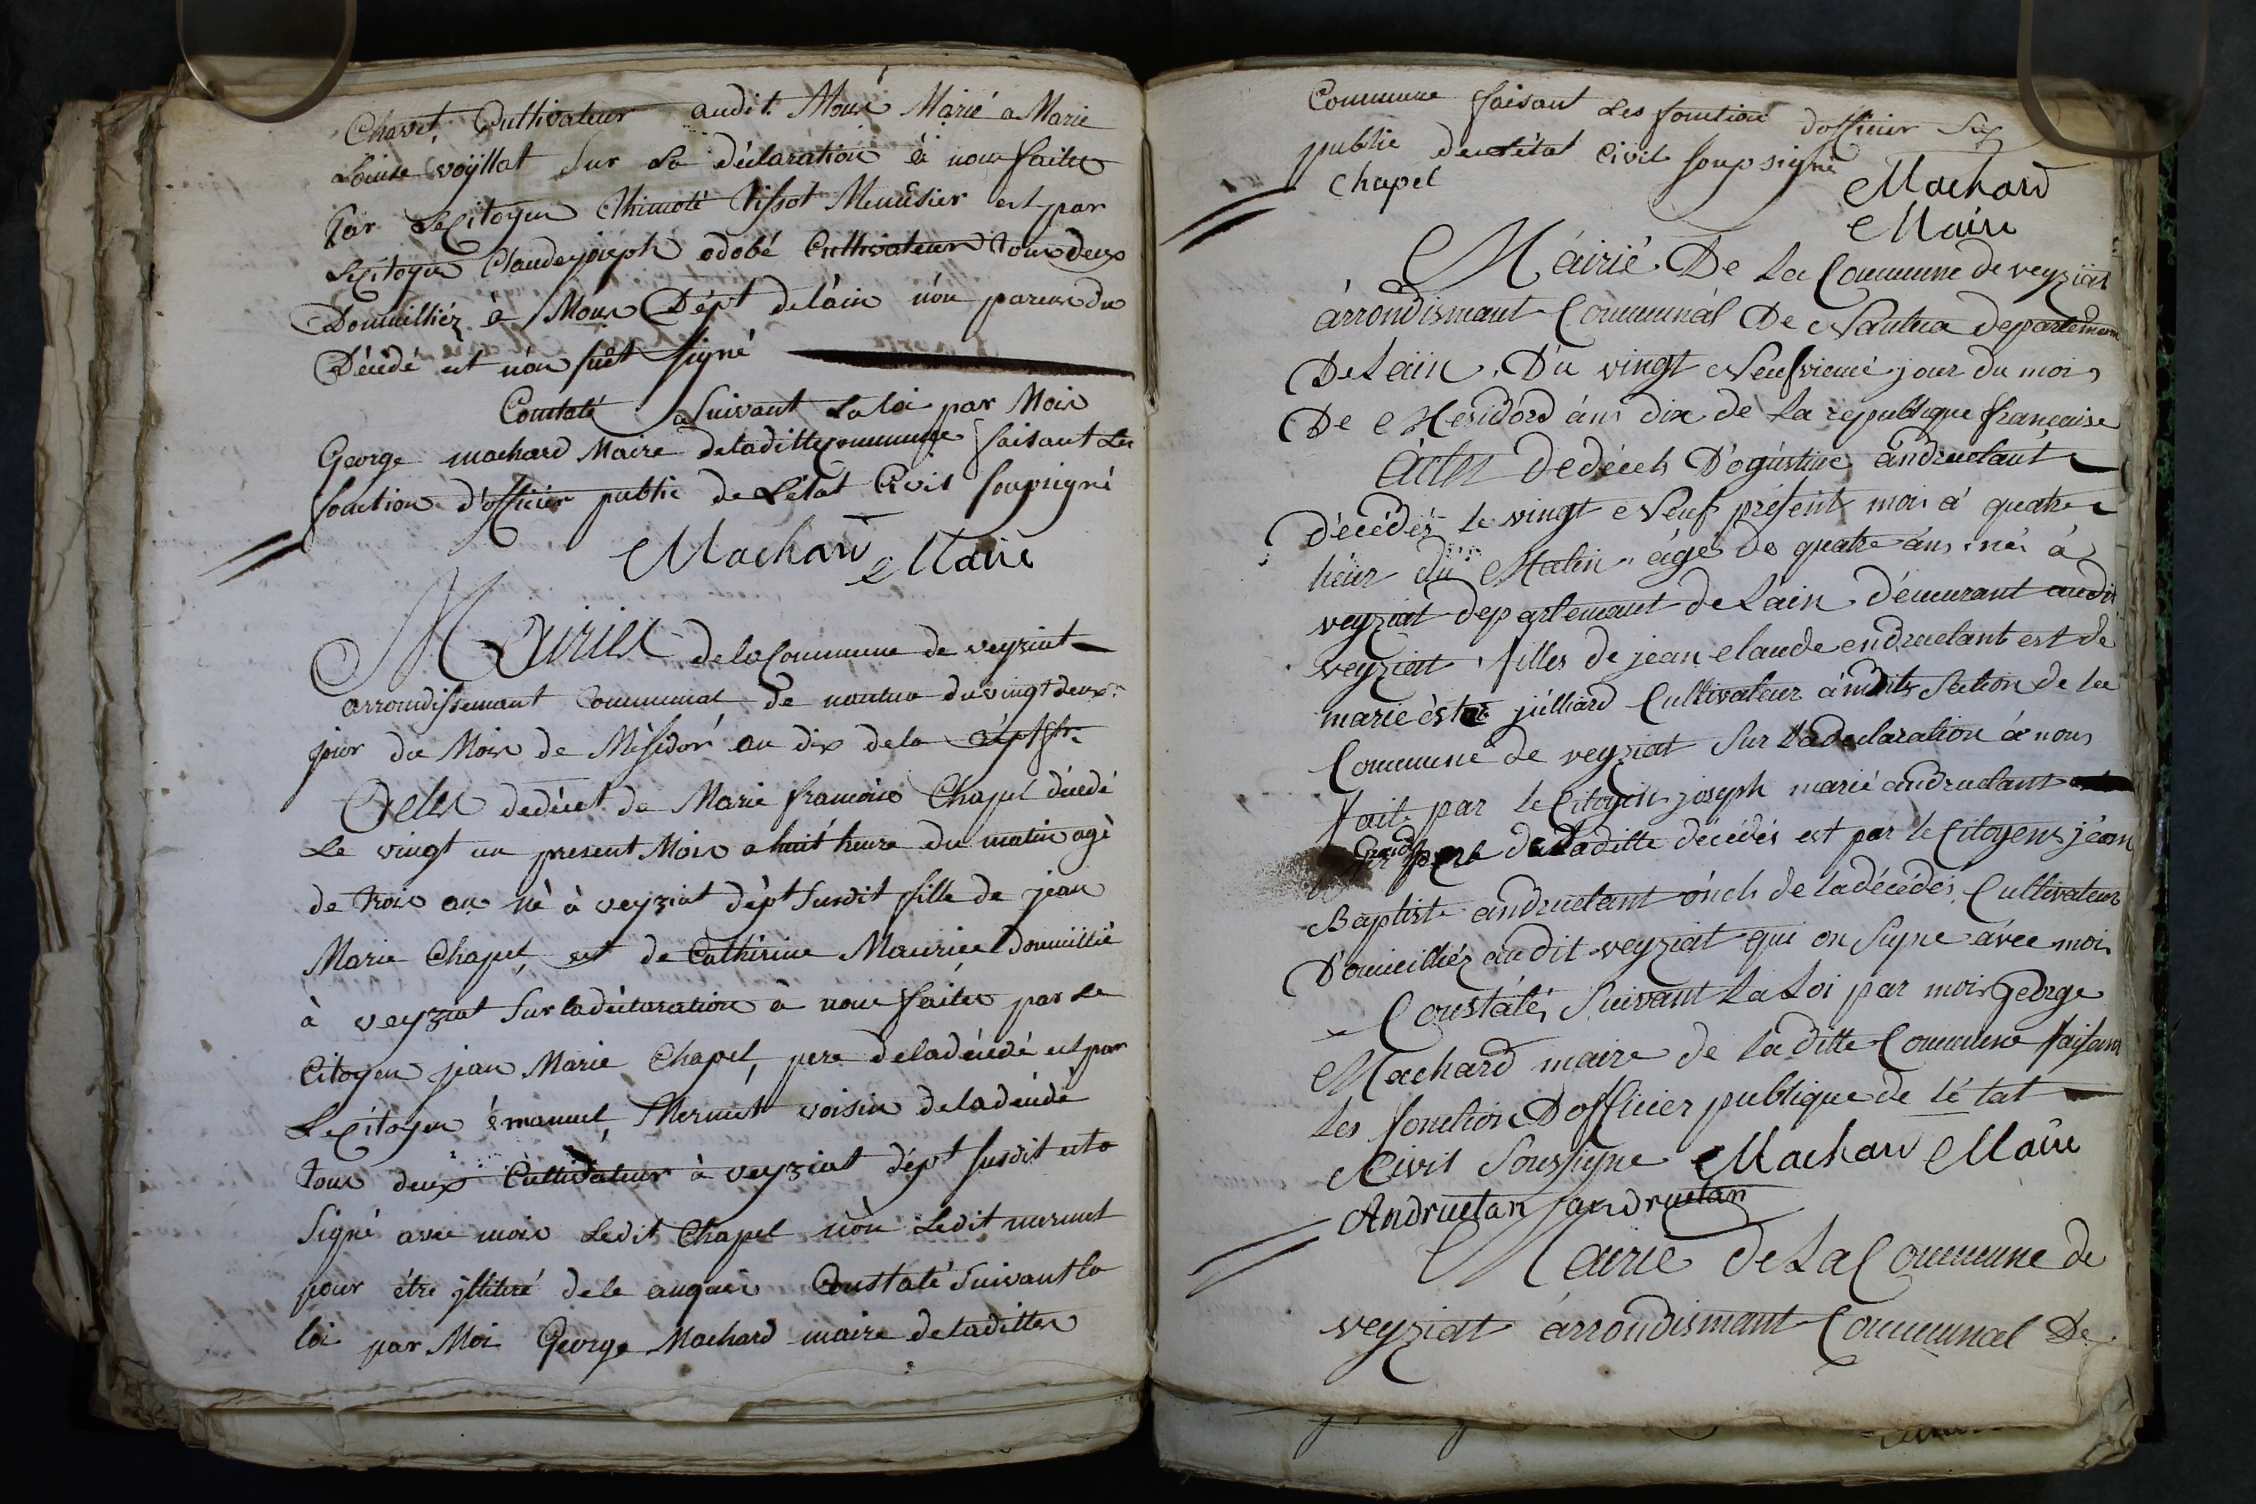 Chavet, Cultivateur audit Moux Marié a Marie
Louise voÿllat Sur La déclaration à nous faites
Par Le Citoyen Thimoté Vissot Menusier est par
Le Citoyen Claudejoseph odobé Cultivateur tous deux
Domicilliéz à Moux Dépt de l'ain nón parens du
Décédé et nón sût signé
Contaté Suivant La loi par Mois
George machard Maire deladitte Commune faisant Les
fonction d'officier public de L'état Civil soussigné
Machard Maire
Mairies dela Commune de veyziat
arrondissement Communal de nantua du vingt deux
jour du Mois de Mésidor an dix de la répt fr.
Actes dedécet de Marie francoise Chapel décédé
Le vingt un present Mois a huit heure du matin agé
de trois an né à veyziat dépt susdit fille de jean
Marie Chapel est de Cathérine Maurice domicillié
à veyziat Sur ladéclaration à nous faites par Le
Citoyen jean Marie Chapel, pere deladécédé est par
Le Citoyen émanuel Mermet voisin deladécédé
tous deux Cultivateur à veyziat dépt susdit et a
signé avec mois Ledit Chapel nón Ledit mermet
pour étre jlliteré dele enquéi Constaté suivant la
loi par Moi George Machard maire deladittes
Commune faisant Les fonction dofficier
public de L'état Civil soussigné
Chapel
Machard
Maire
Mairié De La Commune de veyziat
árrondismant Communàl De Nantua departemen
De Lain. Du vingt Neufvieme jour du mois
De Mesidord áns dix de La republique française
àctes dedécets D'ogustine ándruetant
décédés le vingt Neuf présent mois à quatre
héur du Matin agés de quatre áns, nés à
veyziat departemant de Lain démeurant audit
veyziat filles de jean claude endruetant est de
marie éster júlliard Cultivateur ámdits Section de La
Commune de veyziat Sur Ladeclaration à nous
faite par Le Citoyen joseph marié andruetant
Grand pere deladitte décédés est par le Citoyens jéan
Baptiste andruetant óncls de ladécédés, Cultivateur
Domicilliéz audit veyziat qui on Signe ávec moi
Constatés Suivant La Loi par mois George
Machard maire de Laditte Commune faisant
Les fonction D'officier publique de L'é tat
Civil Soussigne Machard Maire
Andruetan j andruetan
Mairie de La Commune de
veyziat árrondismant Communal De